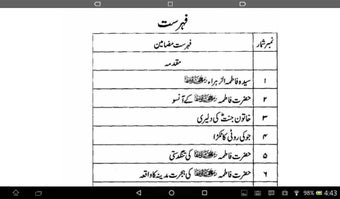 فہرست
نمبر شمار فہرست مضامین
مقدمہ
۱ سیدہ فاطمۃ الزہراء
۲ حضرت فاطمہ کے آنسو
۳ خاتون جنت کی دلیری
۴ جو کی روٹی کا ٹکڑا
۵ حضرت فاطمہ کی تنگدستی
۶ حضرت فاطمہ کی ہجرت مدینہ کا واقعہ
98% 4:43